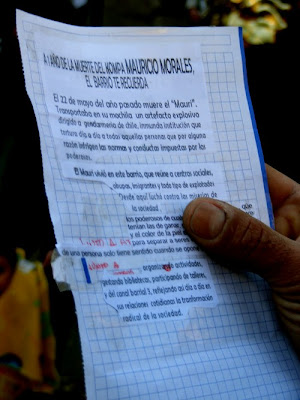 A 1 AÑO DE LA MUERTE DEL KOMPA MAURICIO MORALES,
EL BARRIO TE RECUERDA
El 22 de mayo del año pasado muere el "Mauri".
Transportaba en su mochila un artefacto explosivo
dirigido a gendarmeria de chile, inmunda institución que
tortura día a día a todas aquellas personas que por alguna
razón infrigen las normas y conductas impuestas por los
poderosos.
El Mauri vivió en este barrio, que reúne a centros sociales,
okupas, imigrantes y todo tipo de explotados
Desde aquí luchó contra las miserias de
la sociedad
los poderosos de
que
tenían las de
y el color de la
para separar a
de una persona solo tiene sentido cuando se
organizando actividades,
bibliotecas, participando de talleres
y del canal barrial 3, reflejando así día a día en
sus relaciones cotidianas la transformación
radical de la sociedad.